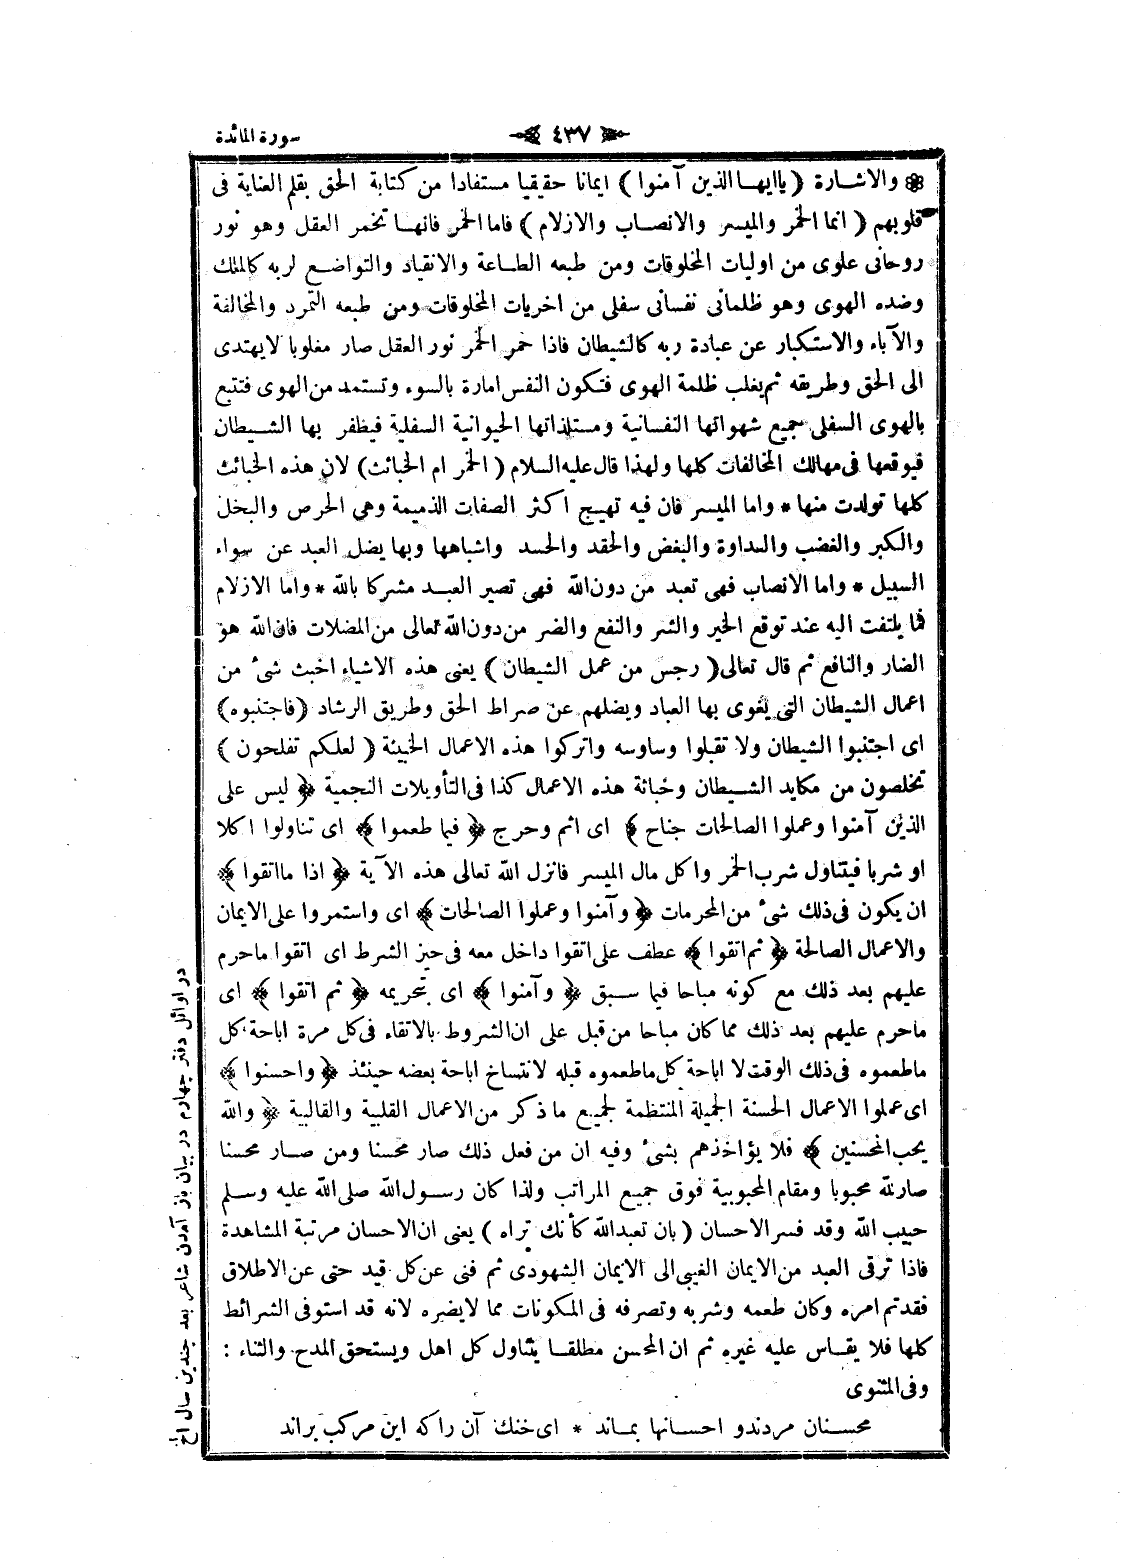 سورة المائدة
﴿ ٤٣٧ ﴾
❁ والاشارة ( ياايها الذين آمنوا ) ايمانا حقيقيا مستفادا من كتابة الحق بقلم العناية فى
قلوبهم ( انما الخمر والميسر والانصاب والازلام ) فاما الخمر فانها تخمر العقل وهو نور
روحانى علوى من اوليات المخلوقات ومن طبعه الطاعة والانقياد والتواضع لربه كالملك
وضده الهوى وهو ظلمانى نفسانى سفلى من اخريات المخلوقات ومن طبعه التمرد والمخالفة
والآباء والاستكبار عن عبادة ربه كالشيطان فاذا خمر الخمر نور العقل صار مغلوبا لايهتدى
الى الحق وطريقه ثم يغلب ظلمة الهوى فتكون النفس امارة بالسوء وتستمد من الهوى فتتبع
بالهوى السفلى جميع شهواتها النفسانية ومستلذاتها الحيوانية السفلية فيظفر بها الشيطان
فيوقعها فى مهالك المخالفات كلها ولهذا قال عليه السلام ( الخمر ام الخبائث ) لان هذه الخبائث
كلها تولدت منها * واما الميسر فان فيه تهييج اكثر الصفات الذميمة وهى الحرص والبخل
والكبر والغضب والعداوة والبغض والحقد والحسد واشباهها وبها يضل العبد عن سواء
السبيل * واما الانصاب فهى تعبد من دون الله فهى تصير العبد مشركا بالله * واما الازلام
فما يلتفت اليه عند توقع الخير والشر والنفع والضر من دون الله تعالى من المضلات فان الله هو
الضار والنافع ثم قال تعالى ( رجس من عمل الشيطان ) يعنى هذه الاشياء اخبث شئ من
اعمال الشيطان التى يغوى بها العباد ويضلهم عن صراط الحق وطريق الرشاد ( فاجتنبوه )
اى اجتنبوا الشيطان ولا تقبلوا وساوسه واتركوا هذه الاعمال الخبيثة ( لعلكم تفلحون )
تخلصون من مكايد الشيطان وخباثة هذه الاعمال كذا فى التأويلات النجمية ﴿ ليس على
الذين آمنوا وعملوا الصالحات جناح ﴾ اى اثم وحرج ﴿ فيما طعموا ﴾ اى تناولوا اكلا
او شربا فيتناول شرب الخمر واكل مال الميسر فانزل الله تعالى هذه الآية ﴿ اذا مااتقوا ﴾
ان يكون فى ذلك شئ من المحرمات ﴿ وآمنوا وعملوا الصالحات ﴾ اى واستمروا على الايمان
والاعمال الصالحة ﴿ ثم اتقوا ﴾ عطف على اتقوا داخل معه فى حيز الشرط اى اتقوا ماحرم
عليهم بعد ذلك مع كونه مباحا فيما سبق ﴿ وآمنوا ﴾ اى بتحريمه ﴿ ثم اتقوا ﴾ اى
ماحرم عليهم بعد ذلك مما كان مباحا من قبل على ان الشروط بالاتقاء فى كل مرة اباحة كل
ماطعموه فى ذلك الوقت لا اباحة كل ماطعموه قبله لانتساخ اباحة بعضه حينئذ ﴿ واحسنوا ﴾
اى عملوا الاعمال الحسنة الجميلة المنتظمة لجميع ماذكر من الاعمال القلبية والقالبية ﴿ والله
يحب المحسنين ﴾ فلا يؤاخذهم بشئ وفيه ان من فعل ذلك صار محسنا ومن صار محسنا
صار لله محبوبا ومقام المحبوبية فوق جميع المراتب ولذا كان رسول الله صلى الله عليه وسلم
حبيب الله وقد فسر الاحسان ( بان تعبد الله كأنك تراه ) يعنى ان الاحسان مرتبة المشاهدة
فاذا ترقى العبد من الايمان الغيبى الى الايمان الشهودى ثم فنى عن كل قيد حتى عن الاطلاق
فقد تم امره وكان طعمه وشربه وتصرفه فى المكونات مما لايضره لانه قد استوفى الشرائط
كلها فلا يقاس عليه غيره ثم ان المحسن مطلقا يتناول كل اهل ويستحق المدح والثناء :
وفى المثنوى
محسنان مردند و احسانها بماند * اى خنك آن راكه اين مركب براند
در اوائل دفتر چهارم در بيان باز آمدن شاعر بعد چندين سال الخ